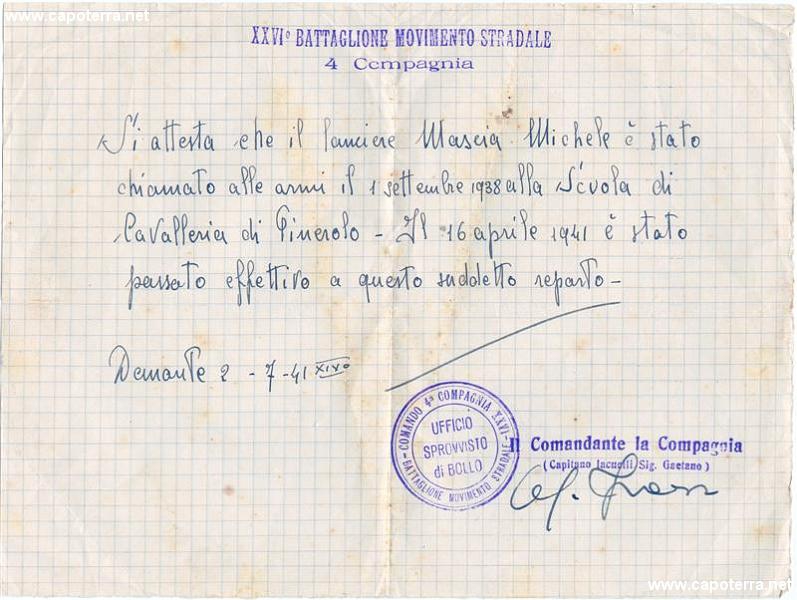 www.capoterra.net
XXVI° BATTAGLIONE MOVIMENTO STRADALE
4 Compagnia
Si attesta che il lanciere Mascia Michele è stato
chiamato alle armi il 1 settembre 1938 alla Scuola di
Cavalleria di Pinerolo - Il 16 aprile 1941 è stato
passato effettivo a questo suddetto reparto -
Demonte 2 - 7 - 41
COMANDO 4ª COMPAGNIA XXVI°
BATTAGLIONE MOVIMENTO STRADALE
UFFICIO
SPROVVISTO
di BOLLO
Il Comandante la Compagnia
(Capitano Sig. Gaetano)
www.capoterra.net